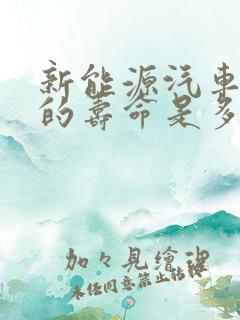 新能源汽车
的寿命是多
加々見繪里
未任同意禁止转载